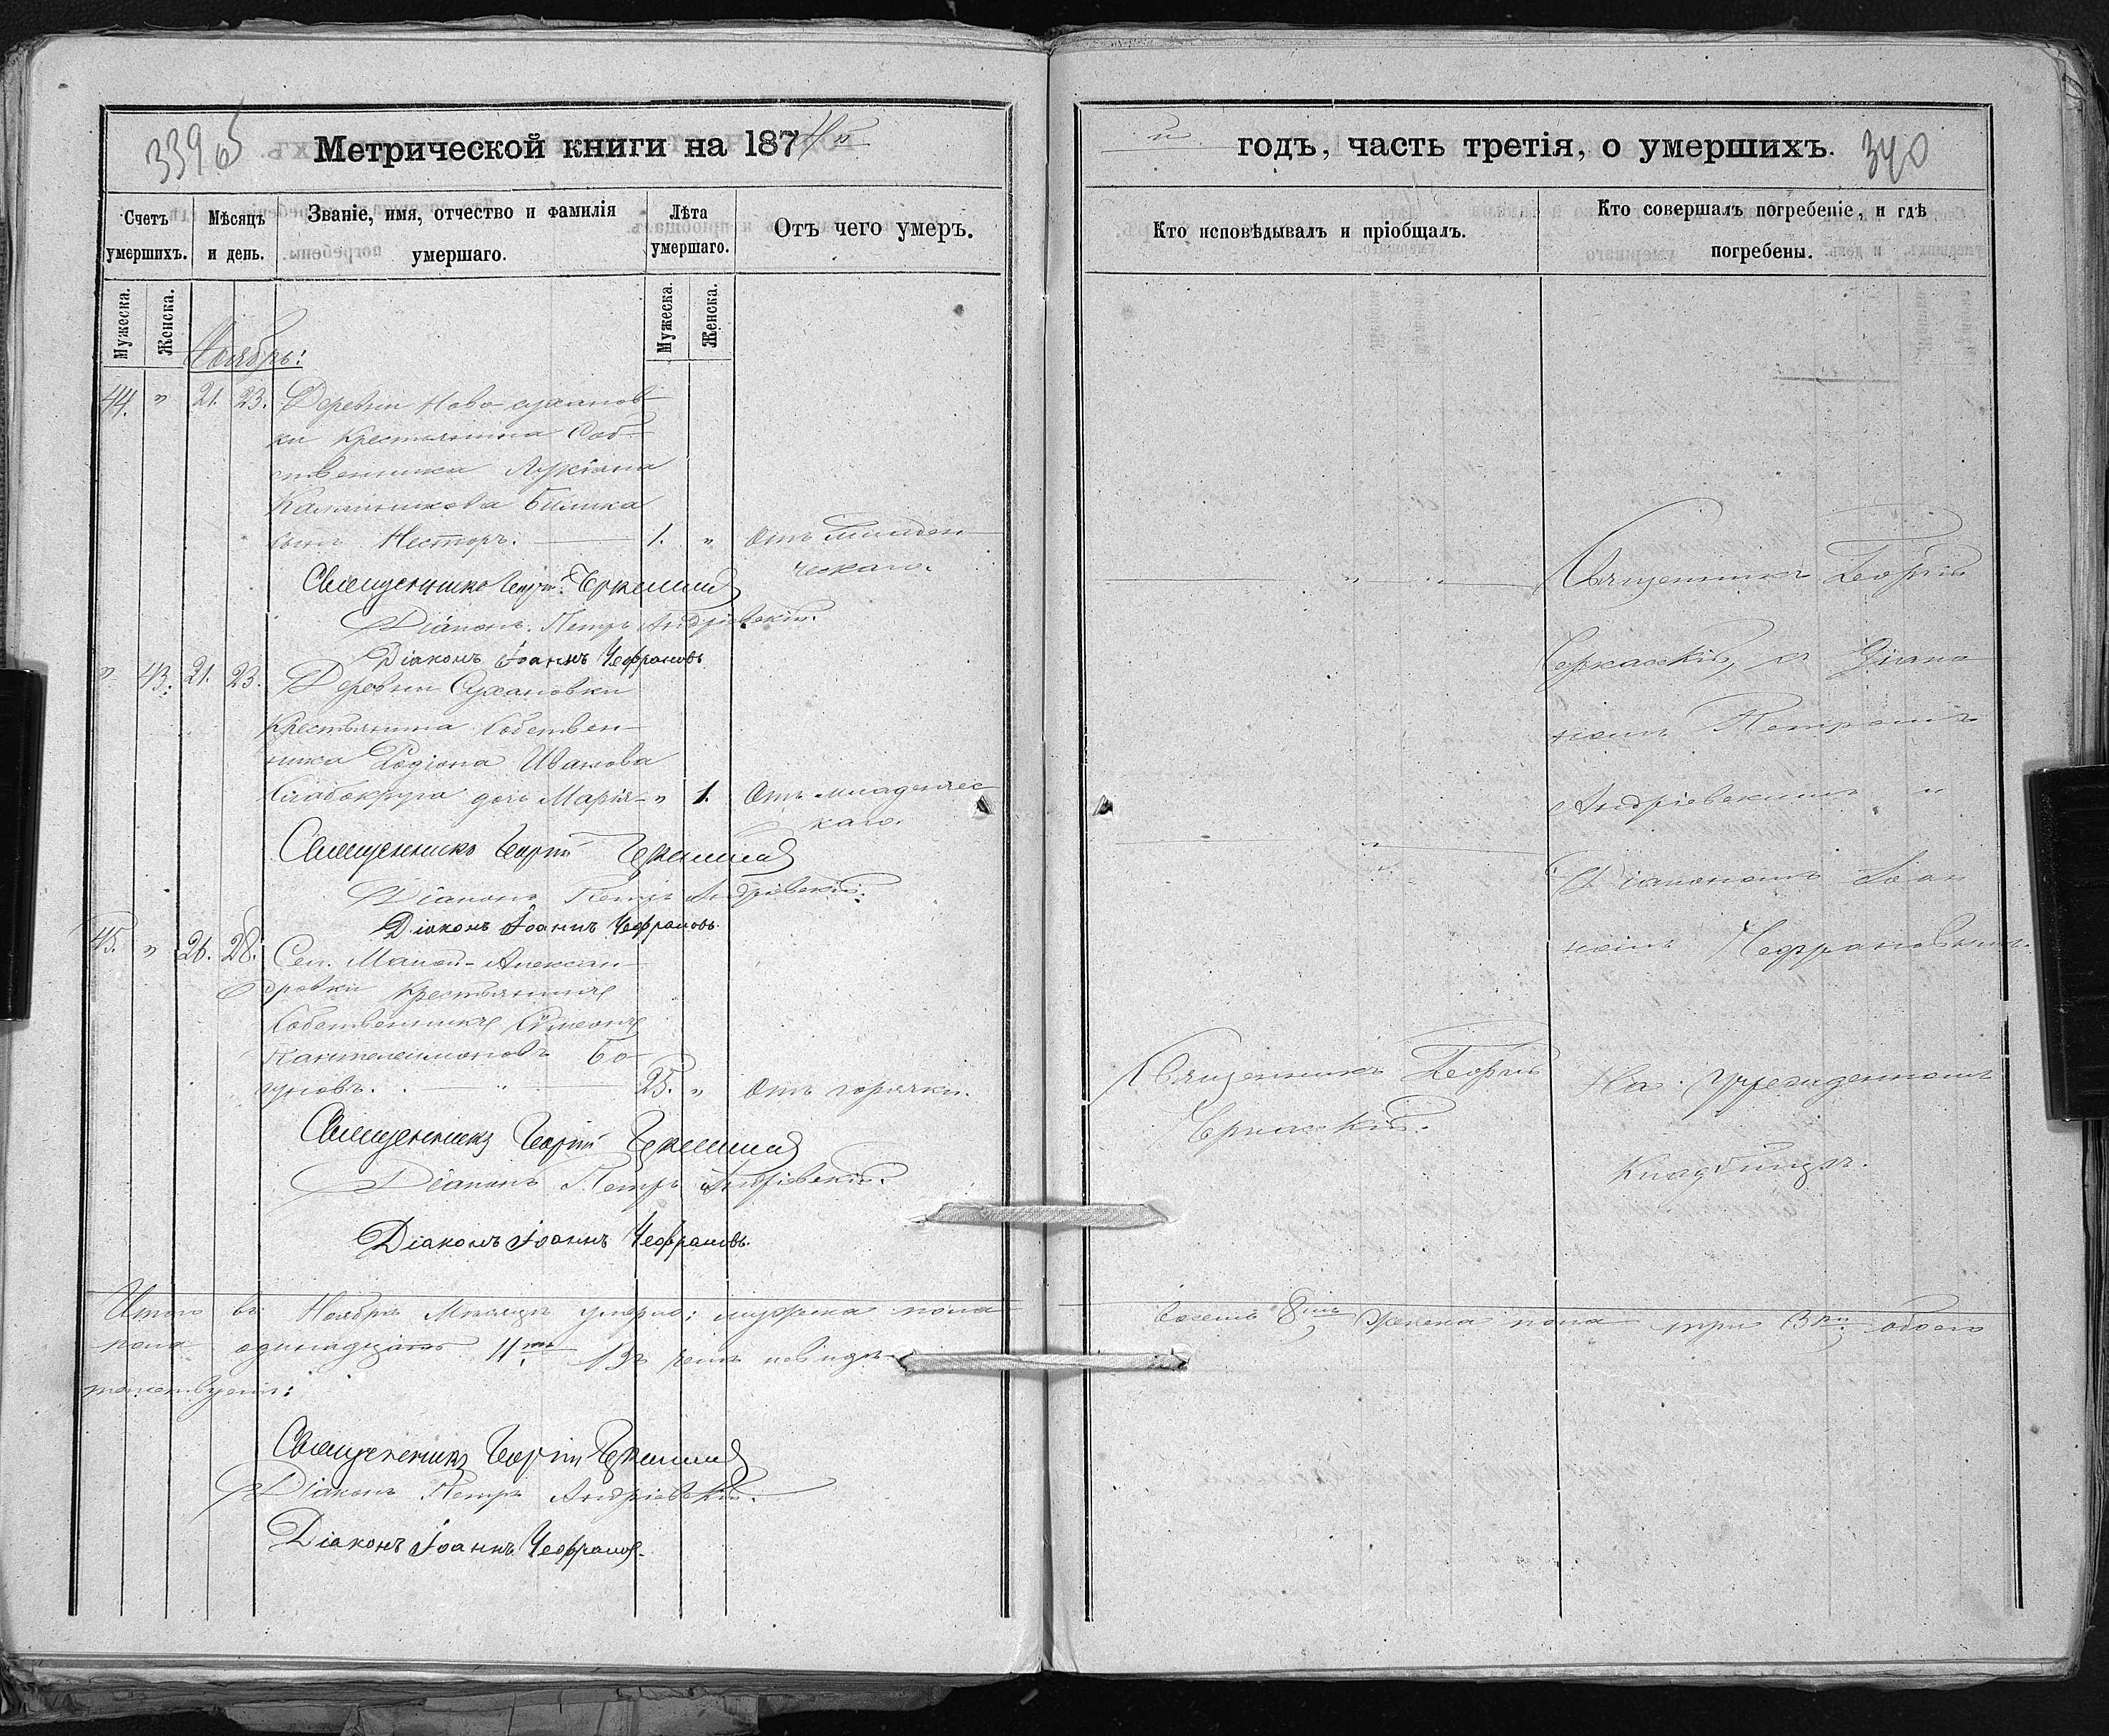 339 об
Метрической книги на 1874й
Счетъ умершихъ.
Мѣсяцъ и день.
Званіе, имя, отчество и фамилія умершаго.
Лѣта умершаго.
Отъ чего умеръ.
Мужеска.
Женска.
Мужеска.
Женска.
Ноябрь:
44. " 21. 23. Деревни Ново-суханов-
ки Крестьянина Соб-
ственника Лукіана
Калинникова Билика
сынъ Несторъ. 1. " Отъ младен-
ческаго.
Священникъ Георгій Черкасскій
Діаконъ Петръ Андріевскій.
Діаконъ Іоаннъ Чефрановъ
" 43. 21. 23. Деревни Сухановки
Крестьянина Собствен-
ника Родіона Иванова
Слабокруга дочь Марія " 1. Отъ младенчес-
каго.
Священникъ Георгій Черкасскій
Діаконъ Петръ Андріевскій.
Діаконъ Іоаннъ Чефрановъ.
45. " 26. 28. Сел. Малой-Алексан-
дровки Крестьянинъ
Собственникъ Симеонъ
Пантелеимоновъ Бо-
гуновъ. 25. " Отъ горячки.
Священникъ Георгій Черкасскій
Діаконъ Петръ Андріевскій.
Діаконъ Іоаннъ Чефрановъ.
Итого въ Ноябрѣ Мѣсяцѣ умерло: мужеска пола
пола одинадцать 11ть Въ чемъ и свидѣ-
тельствуемъ:
Священникъ Георгій Черкасскій
Діаконъ Петръ Андріевскій.
Діаконъ Іоаннъ Чефрановъ.
й годъ, часть третія, о умершихъ. 340
Кто исповѣдывалъ и пріобщалъ.
Кто совершалъ погребеніе, и гдѣ погребены.
Священникъ Георгій
Черкасскій, съ Діако-
номъ Петромъ
Андріевскимъ и
Діакономъ Іоан-
номъ Чефрановымъ.
Священникъ Георгій
Черкасскій.
На учрежденномъ
Кладбищѣ.
восемь 8мь женска пола три 3ри обоего